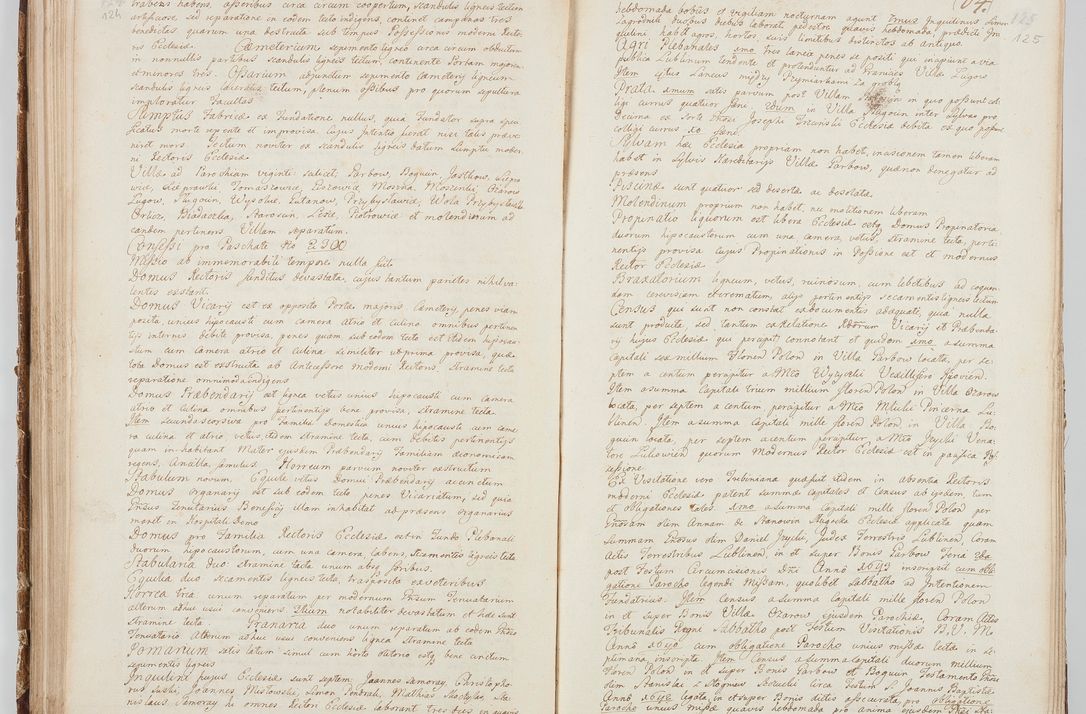 124
trabens habens, asseribus circa circum coopertum, scandulis ligneis tectum
artificiose sed reparatione in eodem tecto indigens, continet campanas tres
benedictas quarum una destructa sub tempus Possessionis moderni Recto-
ris Ecclesiæ. Cæmeterium sepimento ligneo circa circum obductum
in nonnullis partibus scandulis ligneis tectum, continente Portam majorem
et minores tres. Ossarium adjunctum sepimento Cæmeterij ligneum
scandulis ligneis tectum, plenum ossibus pro quorum sepultura
imploratur Facultas
Sumptus Fabricæ ex Fundatione nullus, quia Fundator supra speci-
ficatus morte repente et improvisa, cujus Intentio fuerat nisi talis præve-
niret mors. Tectum noviter ex scandulis ligneis datum sumptu moder-
ni Rectoris Ecclesiæ
Villæ ad Parochiam viginti scilicet, Garbow, Boguin, Jastkow, Sieprá
wice, Sieprawki, Tomaszowice, Moszna, Moszenki, Ozarow
Lugow, Slugocin, Wysokie, Lutanow, Przybysławice, Wola Przybysławska
Orlicz, Biadaczka, Narocin, Lesie, Pietrowice et molendinorum ad
eandem pertinens Villam separatum.
Confessi pro Paschate No 2300
Missio ab immemorabili tempore nulla fuit
Domus Rectoris funditus devastata, cujus tantum parietes nihil va-
lentes exstant.
Domus Vicarij est ex opposito Portæ majoris Cæmeterij, penes viam
posita, unius hipocausti cum camera atrio et culina omnibus pertinen-
tijs internis debite provisa, penes quam sub eodem tecto est itidem hipocau-
stum cum camera atrio et culina similiter ut prima provisa, quæ
tota Domus est exstructa ab Antecessore moderni Rectoris, stramine tecta
reparatione omnimoda indigens
Domus Præbendarij est lignea vetus unius hipocausti cum camera
atrio et culina omnibus pertinentijs bene provisa, stramine tecta
Item secunda seorsiva pro Familia Domestica unius hypocausti cum came-
ra culina et atrio, vetus, itidem stramine tecta, cum debitis pertinentijs
quam inhabitant Mater ejusdem Præbendarij Familiam œconomicam
regens, Ancilla, famulus. Horreum parvum noviter exstructum
Stabulum novum. Equile vetus Domui Præbendarij accinctum
Domus Organarij est sub eodem tecto penes Vicariatum, sed quia
Gnosus Tenutarius Bonessij illam inhabitat ad præsens organarius
manet in Hospitali Domo
Domus pro Familia Rectoris Ecclesiæ extra Fundo Plebanali
duorum hipocaustorum, cum una camera, labens, stramentis ligneis tecta
Stabularia duo stramine tecta unum absq foribus.
Equilia duo stramentis ligneis tecta, trasposita ex veteribus
Horrea tria unum reparatum per modernum Gnosum Tenutarium
alterum adhuc usui conveniens. 3tium notabiliter devastatum et hæc sunt
stramine tecta. Granaria duo unum reparatum ab eodem Gnoso
Tenutario. Alterum adhuc usui conveniens lignea stramine tecta
Pomarium satis latum simul cum horto olitorio estq bene cinctum
sepimentis ligneis
Inquilini hujus Ecclesiæ sunt septem, Joannes Samoray, Christopho-
rus Suski, Joannes Misłowski, Simon Jendrak, Mathias Kostylak, Sta-
nislaus, Samoray hi omnes Rectori Ecclesiæ laborant tres dies in quavis
125
125
hebdomada bobus et vigiliam nocturnam agunt
Zagrodnik duobus diebus laborat pedestre quavis hebdomada, prædicti In-
quilini habent agros, hortos, suis limitibus distinctos ab antiquo.
Agri Plebanales 1mo tres lanei, penes se positi qui incipiunt a via
publica Lublinum tendente et protenduntur ad Granicies Villæ Lugow
Item 4tus Laneus między Przymiarkami za Groblą
Prata. 1mum satis parvum post Villam in quo possunt col-
ligi currus quatuor fæni. 2dum in Villa Slugocin inter Sylvas pro
Decima ex sorte Gnosi Josephi Trzciński Ecclesiæ debita ex quo possunt
colligi currus 10 fæni.
Sylvam hæc Ecclesia propriam non habet, invasionem tamen liberam
habet in Sylvis Hæreditarijs Villæ Garbow, quæ non denegatur ad
præsens
Piscinæ sunt quatuor sed desertæ ac desolatæ.
Molendinum proprium non habet, nec molitionem liberam
Propinatio liquorum est libera Ecclesiæ estq Domus Propinatoria
duorum hipocaustorum cum una camera, vetus, stramine tecta, perti-
nentijs provisa cujus Propinationis in Possessione est et modernus
Rector Ecclesiæ
Braxatorium ligneum, vetus, ruinosum, cum lebetibus ad coquen-
dam cerevisiam et crematum, alijs pertinentijs stramentis ligneis tectum
Census qui sunt non constat ex documentis adæquate, quia nulla
sunt producta, sed tantum ex Relatione Rdorum Vicarij et Præbenda-
rij hujus Ecclesiæ qui percipit connotant et quidem 1mo a summa
Capitali sex millium Floren Polon in Villa Garbow locata, per se-
ptem a centum percipitur a Mco Wyzycki Vexillifero Kijovien.
Item a summa Capitali trium millium floren Polon in Villa Ozarow
locata, per septem a centum percipitur a Mco Mluski Pincerna Lu-
blinen. Item a summa Capitali mille floren Polon in Villa Bo-
guin locata, per septem a centum percipitur a Mco Jeżycki Vena-
tore Lukowien quorum Modernus Rector Ecclesiæ est in pacifica Pos-
sessione.
Ex Visitatione vero Trebiniana quæ fuit itidem in absentia Rectoris
moderni Ecclesiæ patent summæ capitales et Census ab ijsdem tum
et obligationes tales. 1mo a summa Capitali mille floren Polon per
Gnosam olim Annam de Stanowin Ecclesiæ applicata quam
summam Gnosus olim Daniel Jeżycki, Judex Terrestris Lublinen, coram
Actis Terrestribus Lublinen, in et super Bonis Garbow Feria 2da
post Festum Circumcisionis Dni Anno 1693 inscripsit cum obli-
gatione Parocho legendi Missam, quolibet Sabbatho ad Intentionem
Fundatricis. Item Census a summa Capitali mille floren Polon
in et super Bonis Villæ Ozarow ejusdem Parochiæ. Coram Actis
Tribunalis Regni Sabbatho post Festum Visitationis B.V.M.
Anno 1640 cum obligatione Parocho unius missæ lectæ in se-
ptimana inscripta. Item Census a summa capitali duorum millium
Floren Polon in et super Bonis Garbow et Boguin Testamento Gnosi
olim Stanislai a Magnus Jezycki circa Festum S. Joannis Baptistæ
Anno 1642 legata, in et super Bonis dictis assecurata, pro obligatione
Parocho unius missæ quavis hebdomada pro anima ejusdem Gnosi Sta-